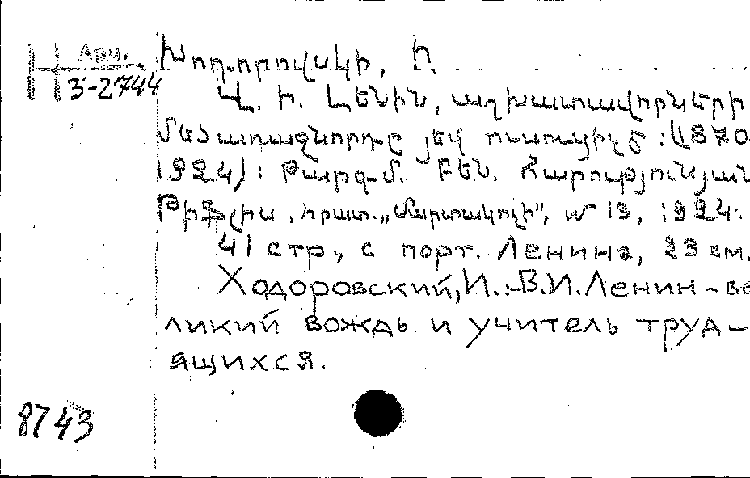 Н Арм.
3-2744
Խոդորովսկի, Ի.
Վ. Ի. Լենին, աշխատավորների
մեծ առաջնորդը յեվ ուսուցիչը: (1870
1924): Թարգմ. Բեն. Հարությունյան
Թիֆլիս, հրատ. „Մարտակոչի", № 13, 1924.
41 стр., с порт. Ленина, 23 см.
Ходоровский, И.: В.И.Ленин – ве
ликий вождь и учитель труд–
ящихся.
8743